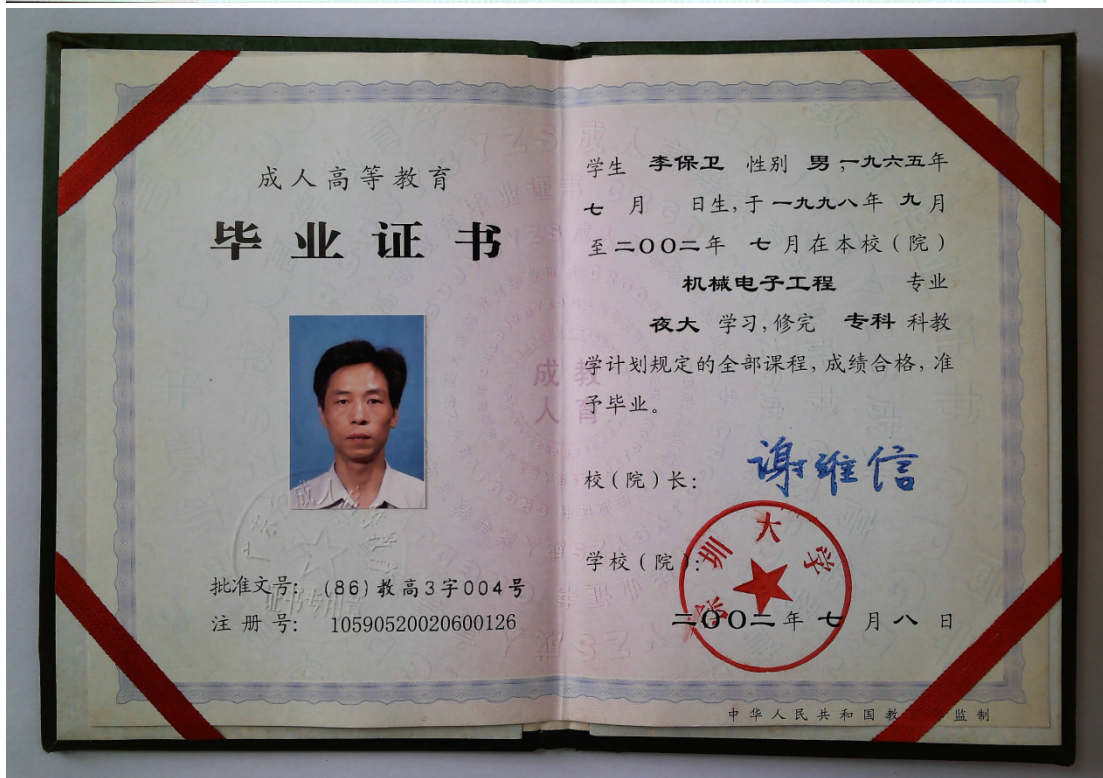 成人高等教育
毕业证书
批准文号: (86)教高3字004号
注册号: 10590520020600126
学生 李保卫 性别 男,一九六五年
七 月 日生,于一九九八年 九月
至二〇〇二年 七月在本校(院)
机械电子工程 专业
夜大 学习,修完 专科 科教
学计划规定的全部课程,成绩合格,准
予毕业。
校(院)长: 谢维信
学校(院):
深圳大学
二〇〇二年 七 月 八 日
中华人民共和国教 监制
成教
人育
证书专用章